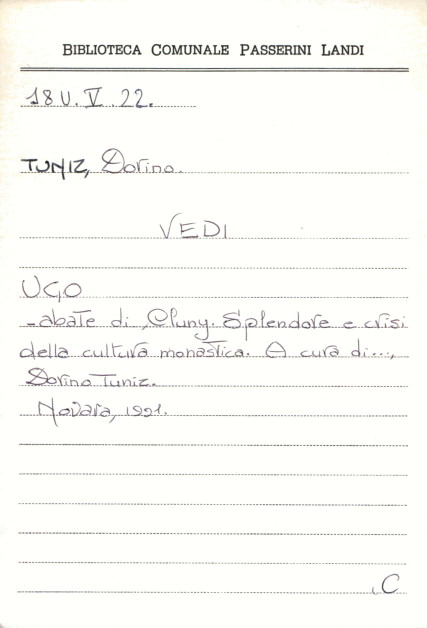 BIBLIOTECA COMUNALE PASSERINI LANDI
18 U. V. 22.
TUNIZ, Dorino.
VEDI
UGO
- abate di Cluny. Splendore e crisi
della cultura monastica. A cura di...,
Dorino Tuniz.
Novara, 1991.
C